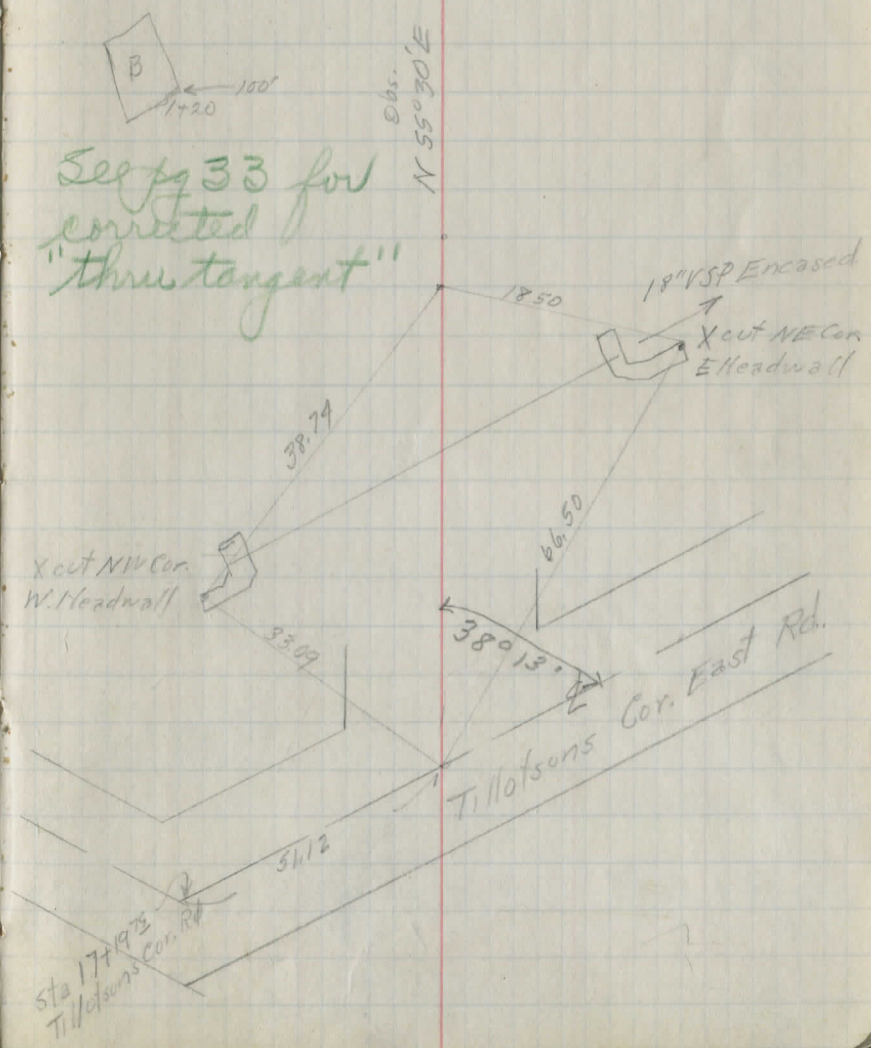 B
100'
1+20
Obs.
N 55°30'E
See pg 33 for
corrected
"thru tangent"
18.50
18" VSP Encased
X cut NE Cor.
E Headwall
38.74
66.50
X cut NW Cor.
W. Headwall
33.09
38° 13'
Tillotsons Cor. East Rd.
51.12
Sta 17+19 75
Tillotsons Cor. Rd.